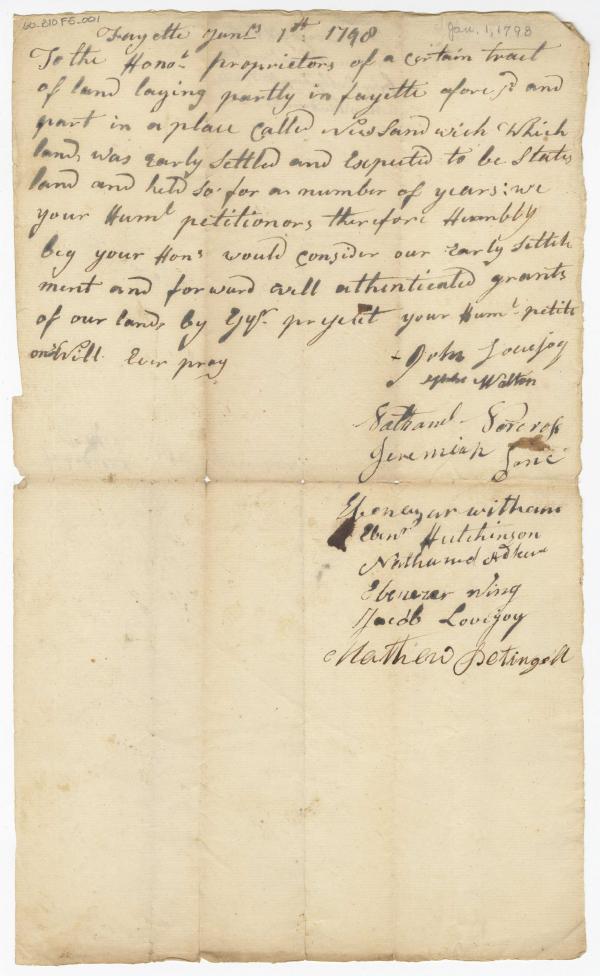 60-210F5-001
Jan. 1, 1798
Fayette Janry 1st: 1798
To the Honol proprietors of a certain tract
of land laying partly in fayette afore sd and
part in a place called New Sandwich Which
land, was early settled and Expected to be States
land and held so for a number of years: we
your Huml petitionors therefore Humbly
beg your Hons would consider our early settle
ment and forward well authenticated grants
of our land, by Esqr. present your Huml petiti
ons Will Ever pray
John Lovejoy
Walton
Nathanl Norcross
Jeremiah
Ebenezar witham
Ebenr Hutchinson
Nathaniel
Ebenezer Wing
Jacob Lovejoy
Mathew Petingell